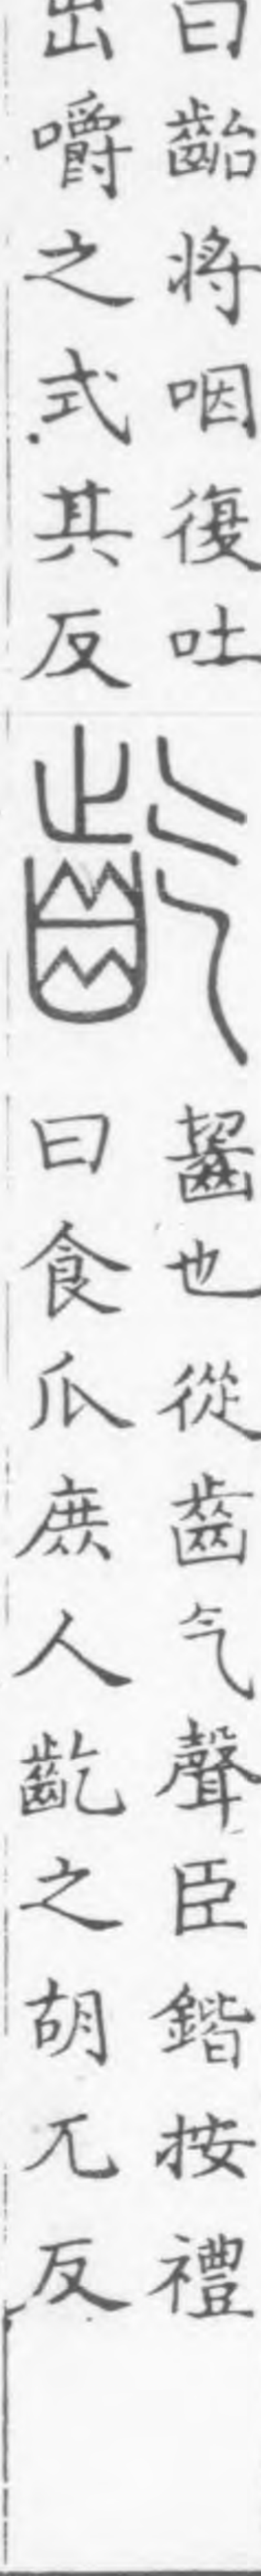 曰齝將咽復吐
出嚼之式其反
齕
齧也從齒气聲臣鍇按禮
曰食瓜庶人齕之胡兀反